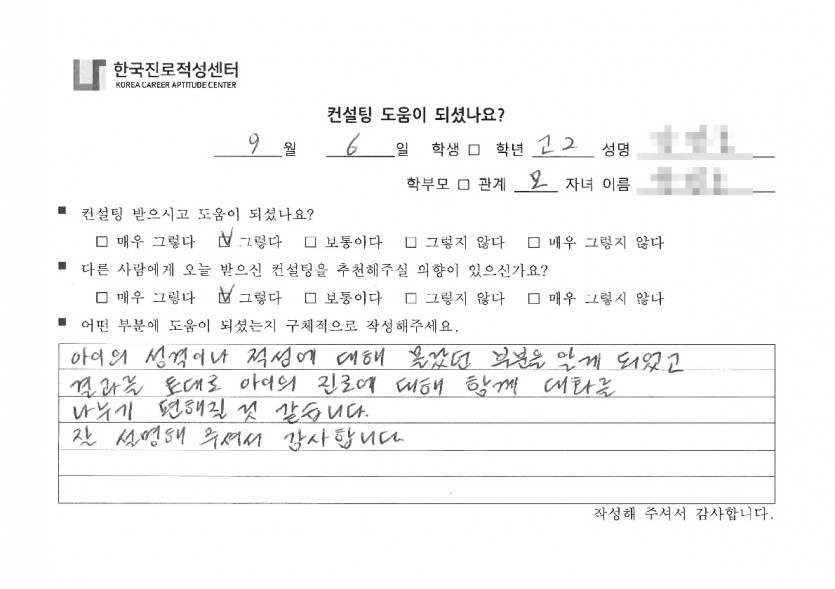 한국진로적성센터
KOREA CAREER APTITUDE CENTER
컨설팅 도움이 되셨나요?
9 월 6 일 학생 □ 학년 고2 성명
학부모 □ 관계 모 자녀 이름
■ 컨설팅 받으시고 도움이 되셨나요?
□ 매우 그렇다 ☑ 그렇다 □ 보통이다 □ 그렇지 않다 □ 매우 그렇지 않다
■ 다른 사람에게 오늘 받으신 컨설팅을 추천해주실 의향이 있으신가요?
□ 매우 그렇다 ☑ 그렇다 □ 보통이다 □ 그렇지 않다 □ 매우 그렇지 않다
■ 어떤 부분에 도움이 되셨는지 구체적으로 작성해주세요.
아이의 성격이나 적성에 대해 몰랐던 부분을 알게 되었고
결과를 토대로 아이의 진로에 대해 함께 대화를
나누기 편해질 것 같습니다.
잘 설명해 주셔서 감사합니다.
작성해 주셔서 감사합니다.